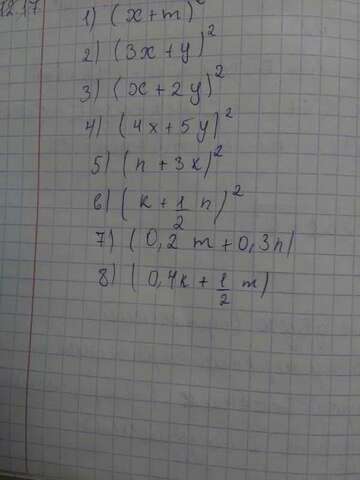 12.17.
1) (x+m)²
2) (3x+y)²
3) (x+2y)²
4) (4x+5y)²
5) (n+3k)²
6) (k+1/2 n)²
7) (0,2 m+0,3n)
8) (0,4k+1/2 m)